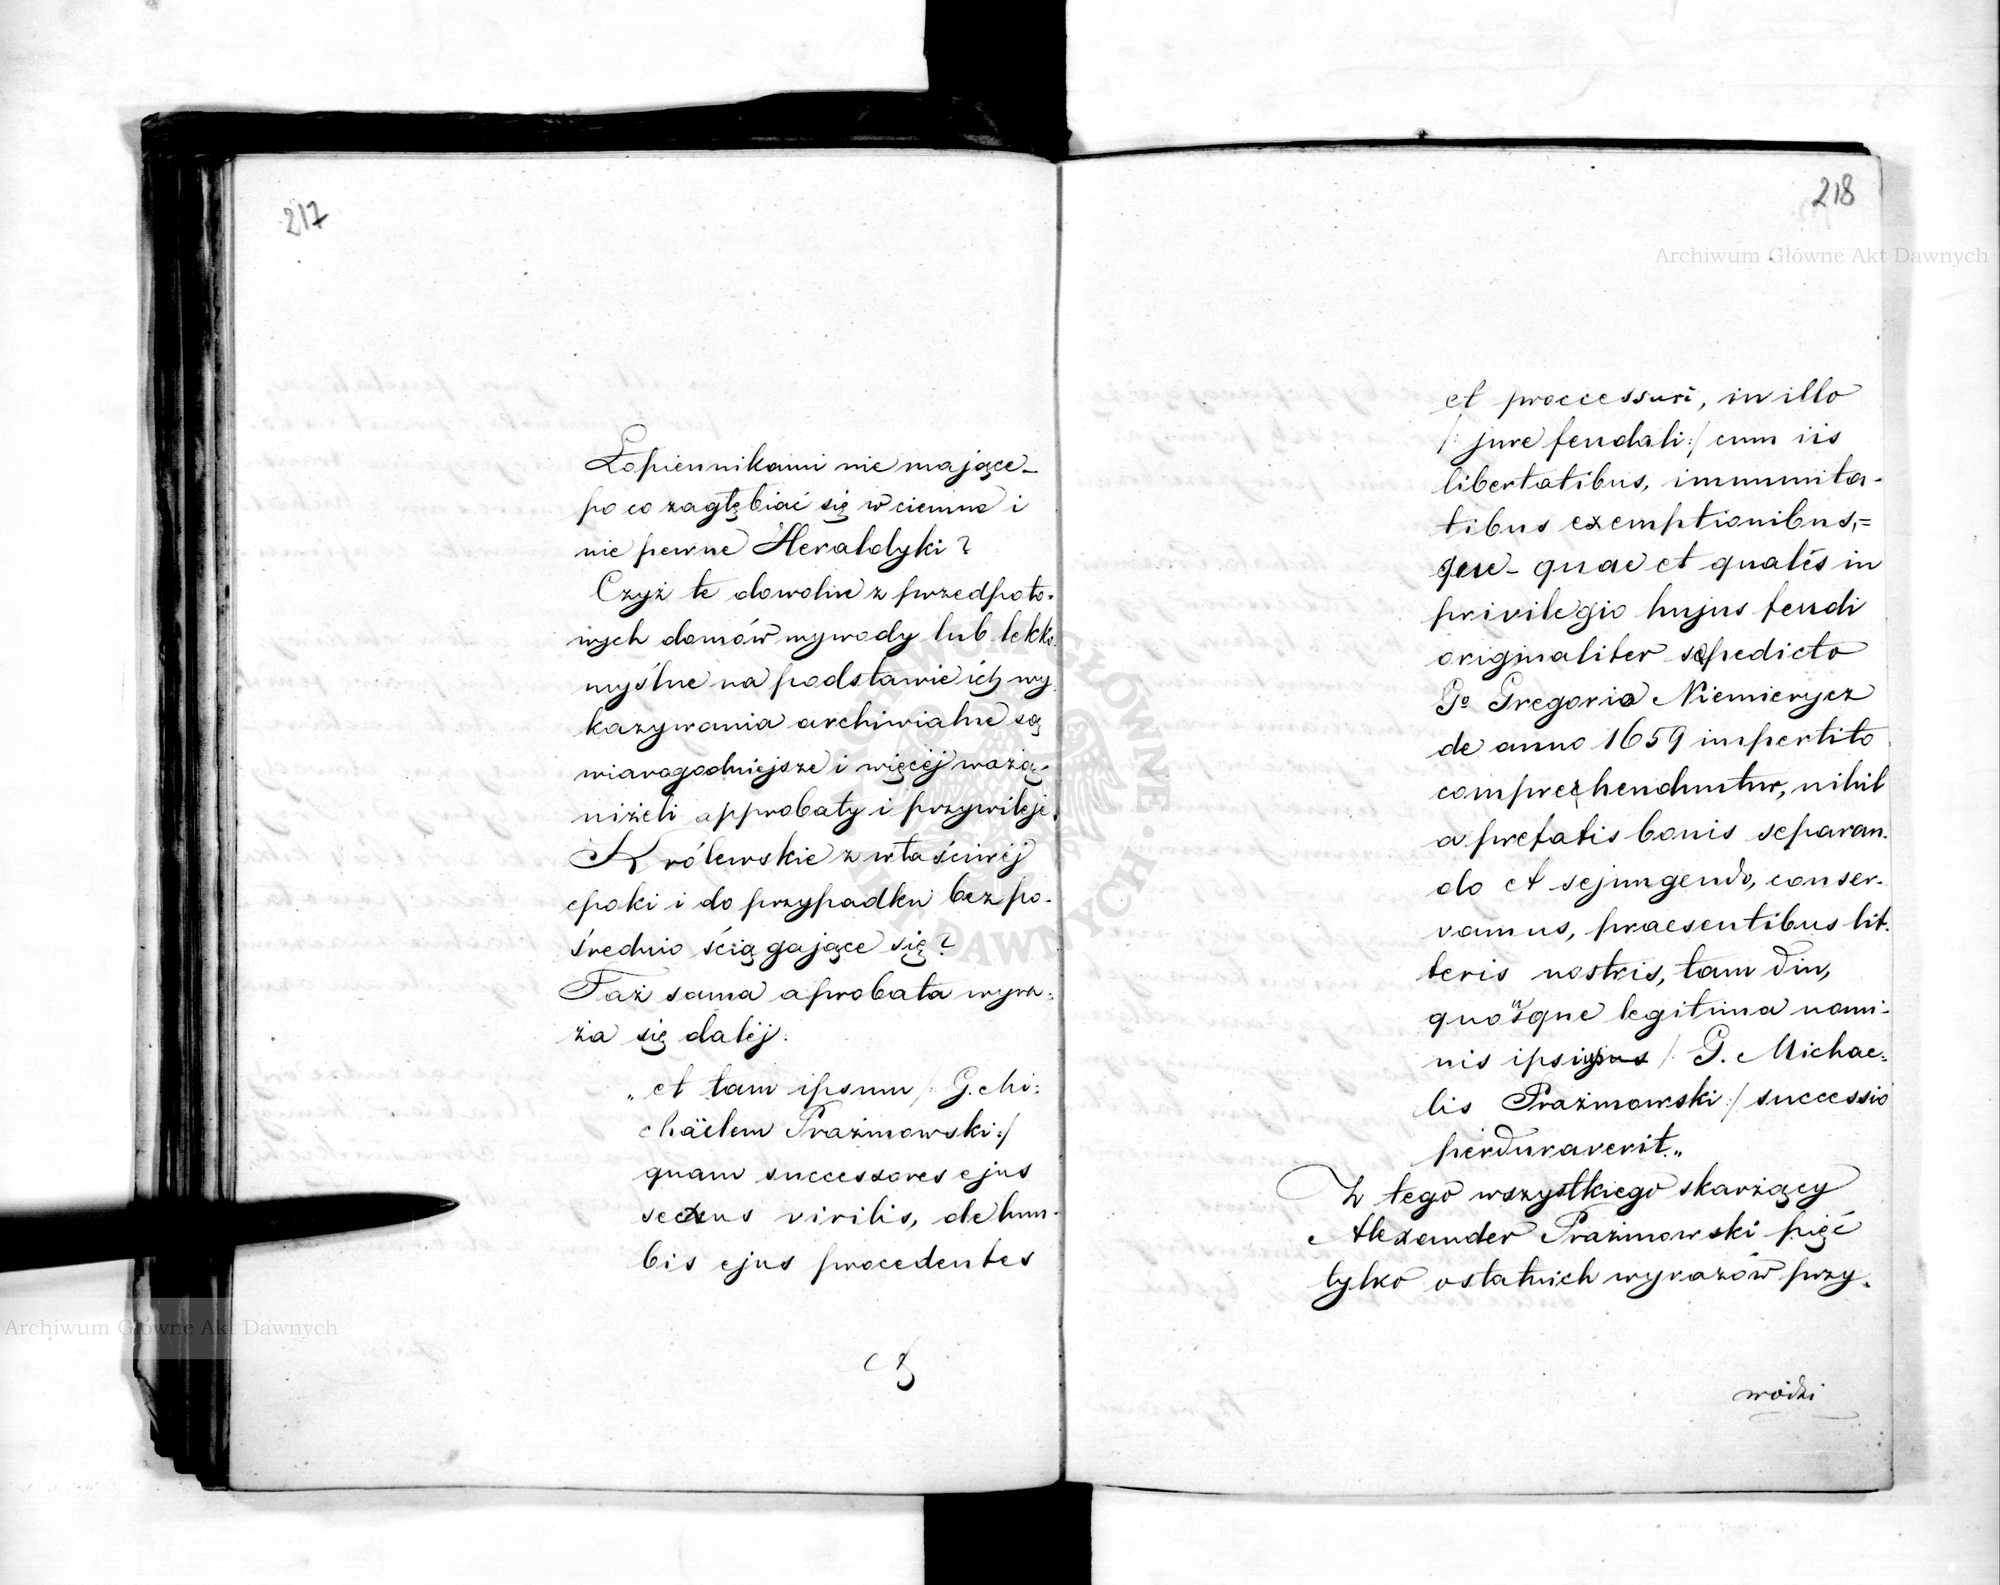 217
Łopiennikami nie mające_
po co zagłębiać się w ciemne i
nie pewne Heraldyki?
Czyż te dowolne z przedpoto-
wych domów wywody lub lekko
myślne na podstawie ich wy
kazywania archiwialne są
wiarogodniejsze i więcéj ważą-
niżeli approbaty i przywileje
Królewskie z właściwéj
epoki i do przypadku bezpo-
średnio ściągające się?
Taż sama aprobata wyra-
ża się daléj:
„et tam ipsum /: G. Mi-
chäelem Prażmowski :/
quam successores ejus
sexus virilis, de lum-
bis ejus procedentes
et
218
et proccessuri, in illo
/: jure feudali :/ cum iis
libertatibus, immunita-
tibus exemptionibus,=
que_ quae et quales in
privilegio hujus feudi
originaliter sepedicto
Go Gregorio Niemierycz
de anno 1659 impertito
comprehenduntur, nihil
a prefatis bonis separan-
do et sejungendo, conser-
vamus, praesentibus lit-
teris nostris, tam diu,
quousque legitima nomi-
nis ipsius /: G. Michae-
lis Prażmowski :/ successio
perduraverit.„
Z tego wszystkiego skarżący
Alexander Prażmowski pięć
tylko ostatnich wyrazów przy-
wodzi
Archiwum Główne Akt Dawnych
Archiwum Główne Akt Dawnych